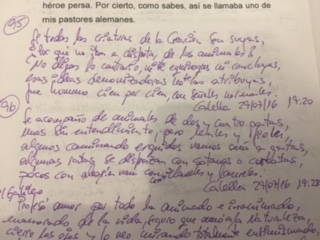 héroe persa. Por cierto, como sabes, así se llamaba uno de
mis pastores alemanes.
95
Si todas las criaturas de la Creación son suyas,
¿Por qué no iba a disfrutar de los animales?
No digas lo contrario, ni te equivoques ni concluyas,
esas ideas demonizadoras ni las atribuyas,
que humano cien por cien, con señales
Calella 29/07/16 19:20
96
Se acompaña de animales de dos y cuatro patas,
mas sin entendimiento, pero leales y
algunos caminando erguidos vamos a gatas,
algunas ratas, se disfrazan con o corbatas,
pocos con alegría van con y
Calella 29/07/16 19:28
amor por todo lo animado e inanimado,
enamorado de la vida, seguro que amó a la Naturaleza,
cierro los ojos y lo veo totalmente entusiasmado,